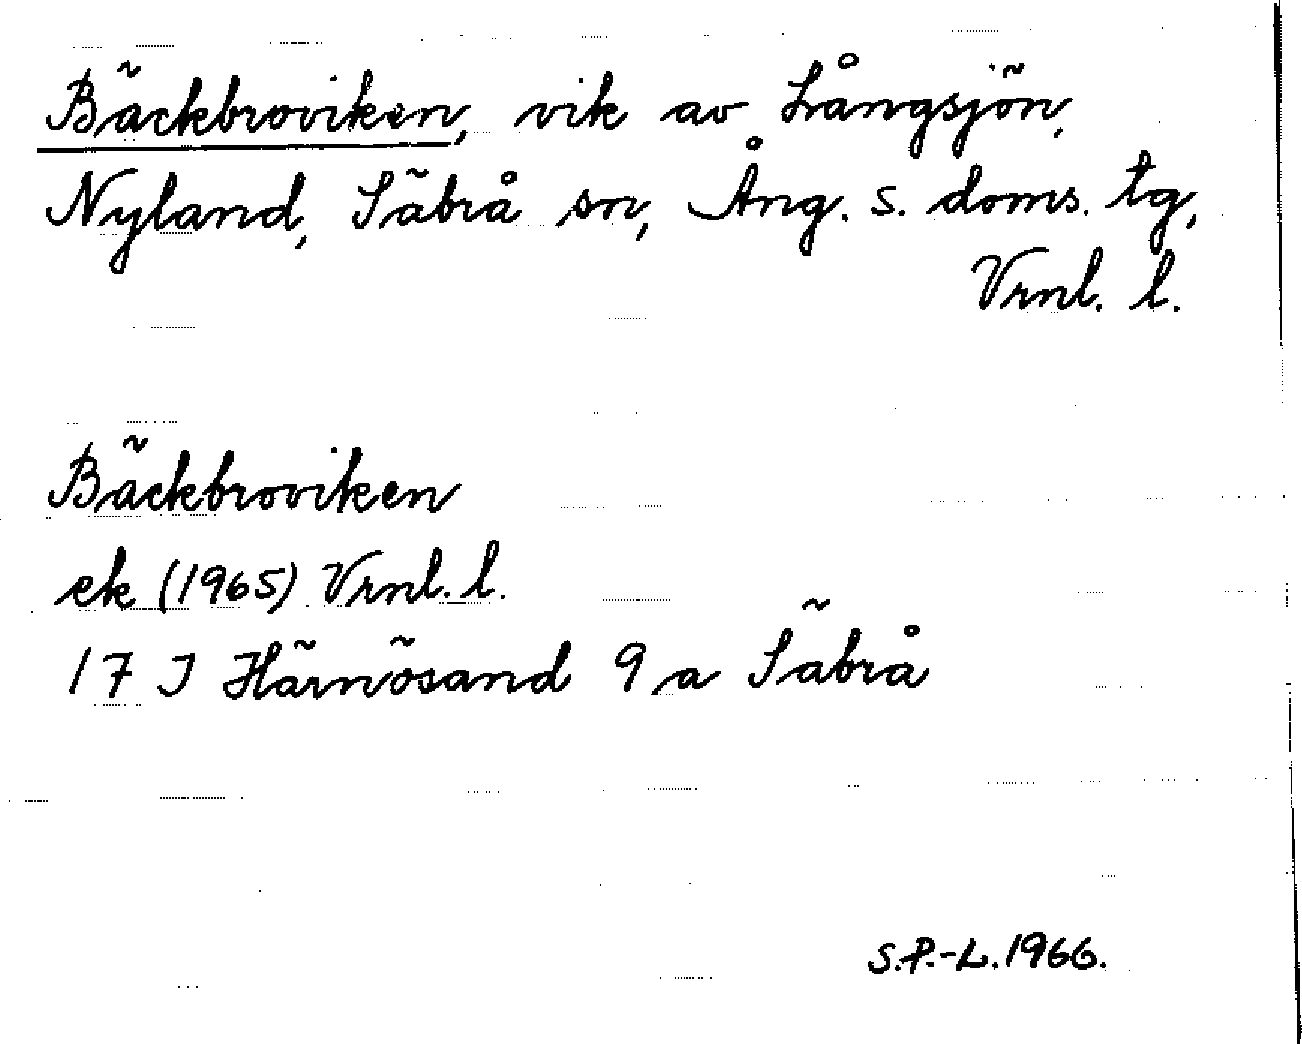 Bäckbroviken, vik av Långsjön,
Nyland, Säbrå sn, Ång. s. doms. tg,
Vrnl. l.
Bäckbroviken
ek (1965) Vrnl. l.
17 J Härnösand 9 a Säbrå
S.P.-L. 1966.